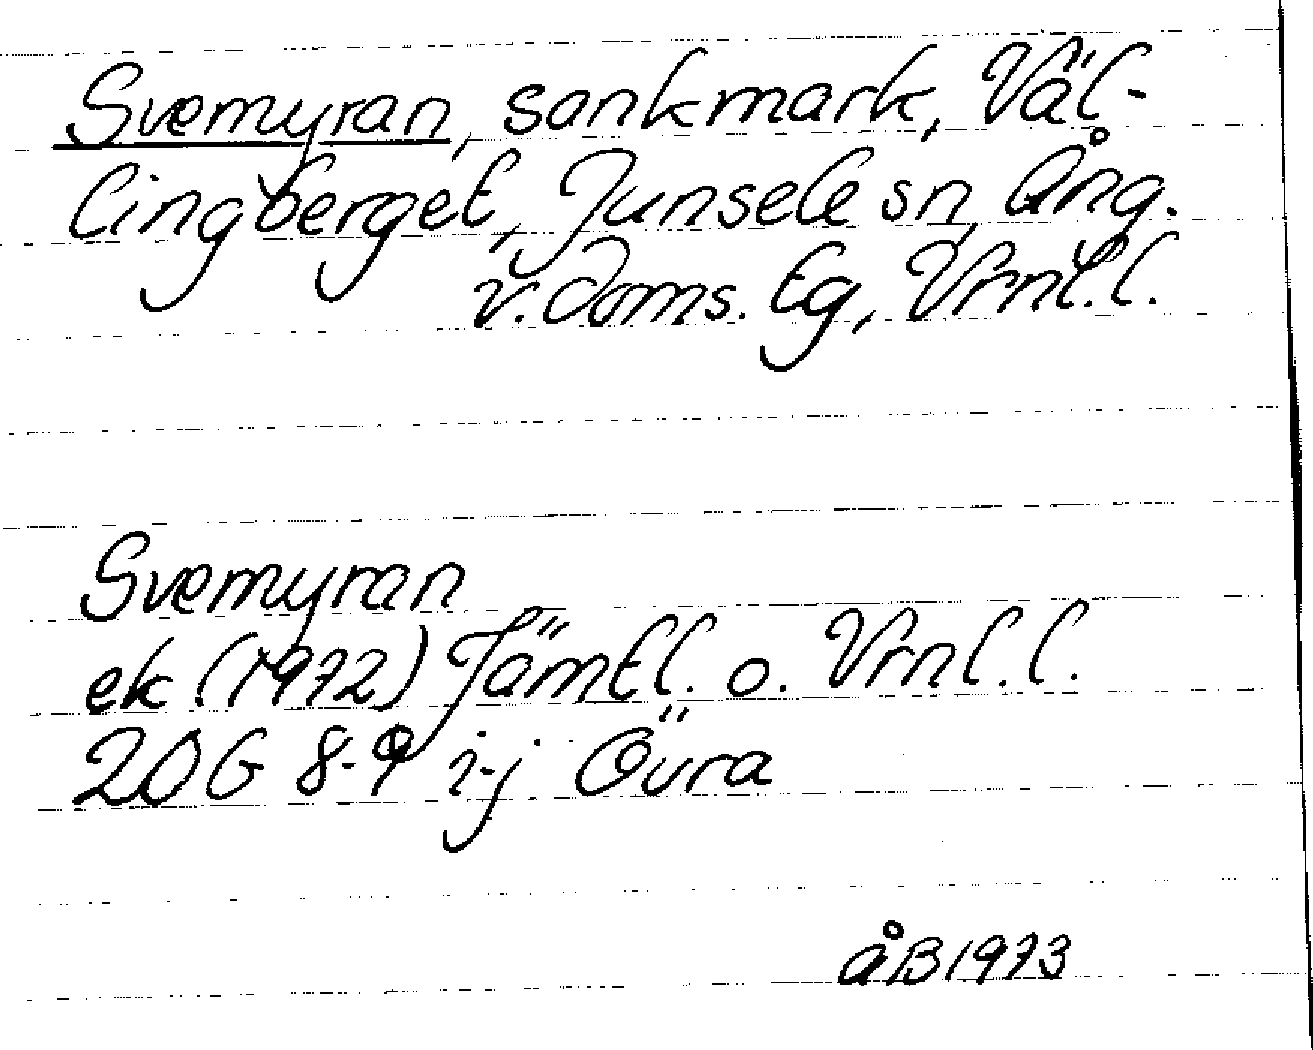 Svemyran, sankmark, Väl-
lingberget, Junsele sn, Ång.
v. doms. tg, Vrnl.l.
Svemyran
ek (1972) Jämtl. o. Vrnl.l.
20G 8-9 i-j Övra
åB 1973